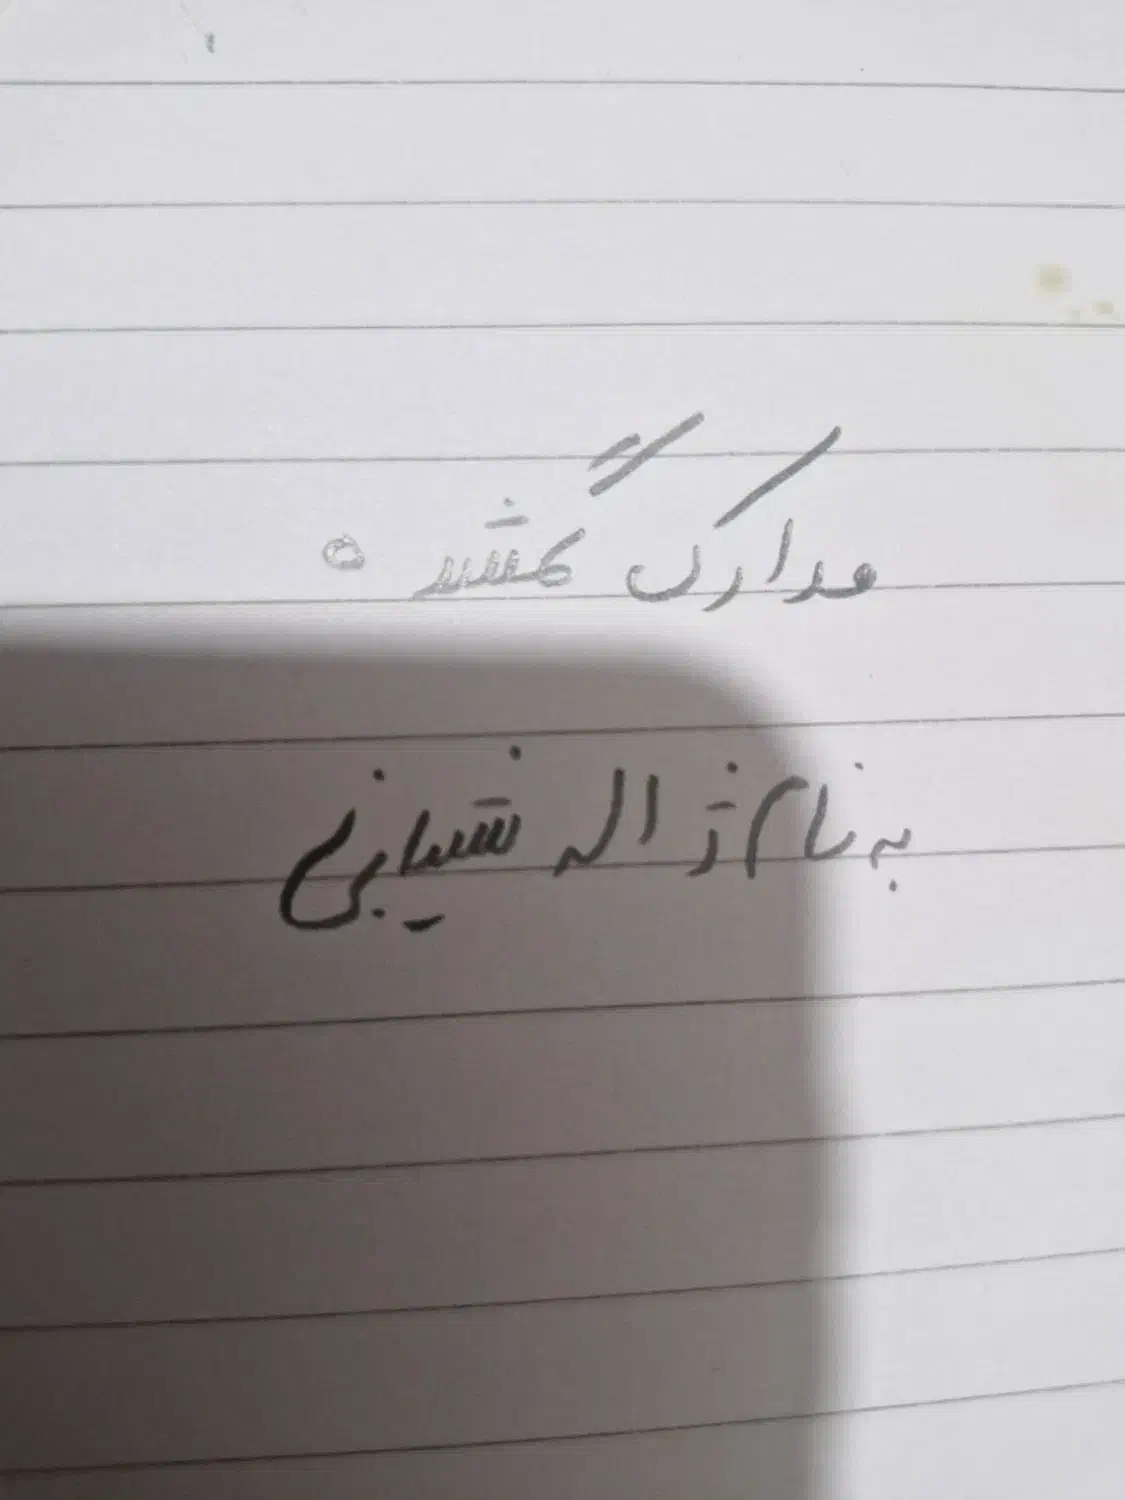 مدارک گمشده
به نام ژاله شیبانی